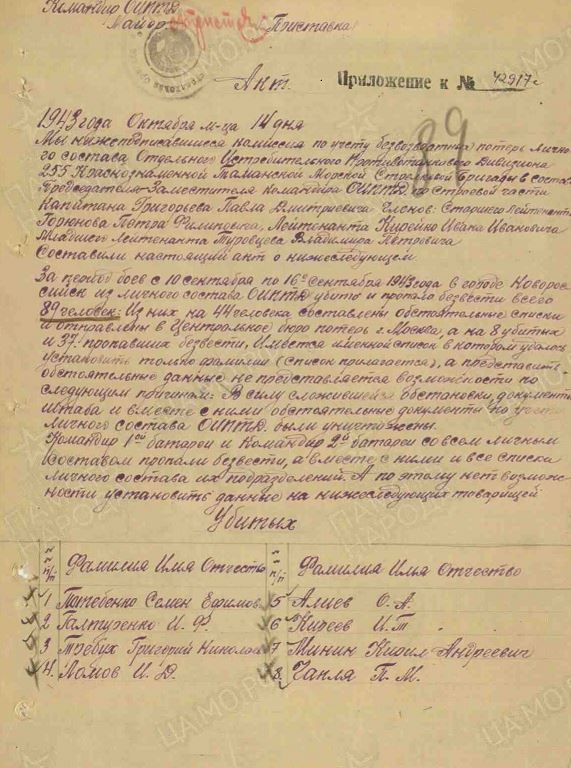 Командир ОИПТД
Майор Приставка
Акт. Приложение к № 42917с
1943 года Октября м-ца 14 дня
89
Мы нижеподписавшиеся комиссия по учету безвозвратных потерь лично-
го состава Отдельного Истребительного Противотанкового Дивизиона
255 Краснознаменной Таманской Морской Стрелковой бригады в составе
Председателя Заместителя командира ОИПТД по строевой части
Капитана Григорьева Павла Дмитриевича Членов: Старшего Лейтенанта
Горюнова Петра Филиповича, Лейтенанта Кирейко Ивана Ивановича
Младшего Лейтенанта Туровцева Владимира Петровича
Составили настоящий акт о нижеследующем
За период боев с 10 сентября по 16 сентября 1943 года в городе Новорос-
сийск из личного состава ОИПТД убито и пропало безвести всего
89 человек: Из них на 44 человека составлены обстоятельные списки
и отправлены в Центральное бюро потерь г. Москва, а на 8 убитых
и 37 пропавших безвести, Имеется именной список в котором удалось
установить только фамилии (список прилагается), а представить
обстоятельные данные не представляется возможности по
следующим причинам: В силу сложившейся обстановки, документы
штаба и вместе с ними обстоятельные документы по учету
личного состава ОИПТД были уничтожены.
Командир 1ой батареи и Командир 2ой батареи со всем личным
составом пропали безвести, а вместе с ними и все списки
личного состава их подразделений. А по этому нет возмож-
ности установить данные на нижеследующих товарищей
Убитых
№№ п/п Фамилия Имя Отчество №№ п/п Фамилия Имя Отчество
1 Семен Ефимов 5 Алиев О. А.
2 Галтуренко И. Ф. 6 Киреев И. Т
3 Требух Григорий Николаев 7 Минин Кирил Андреевич
4. Ломов И. Д. 8. Чакля П. М.
ЦАМО.РФ